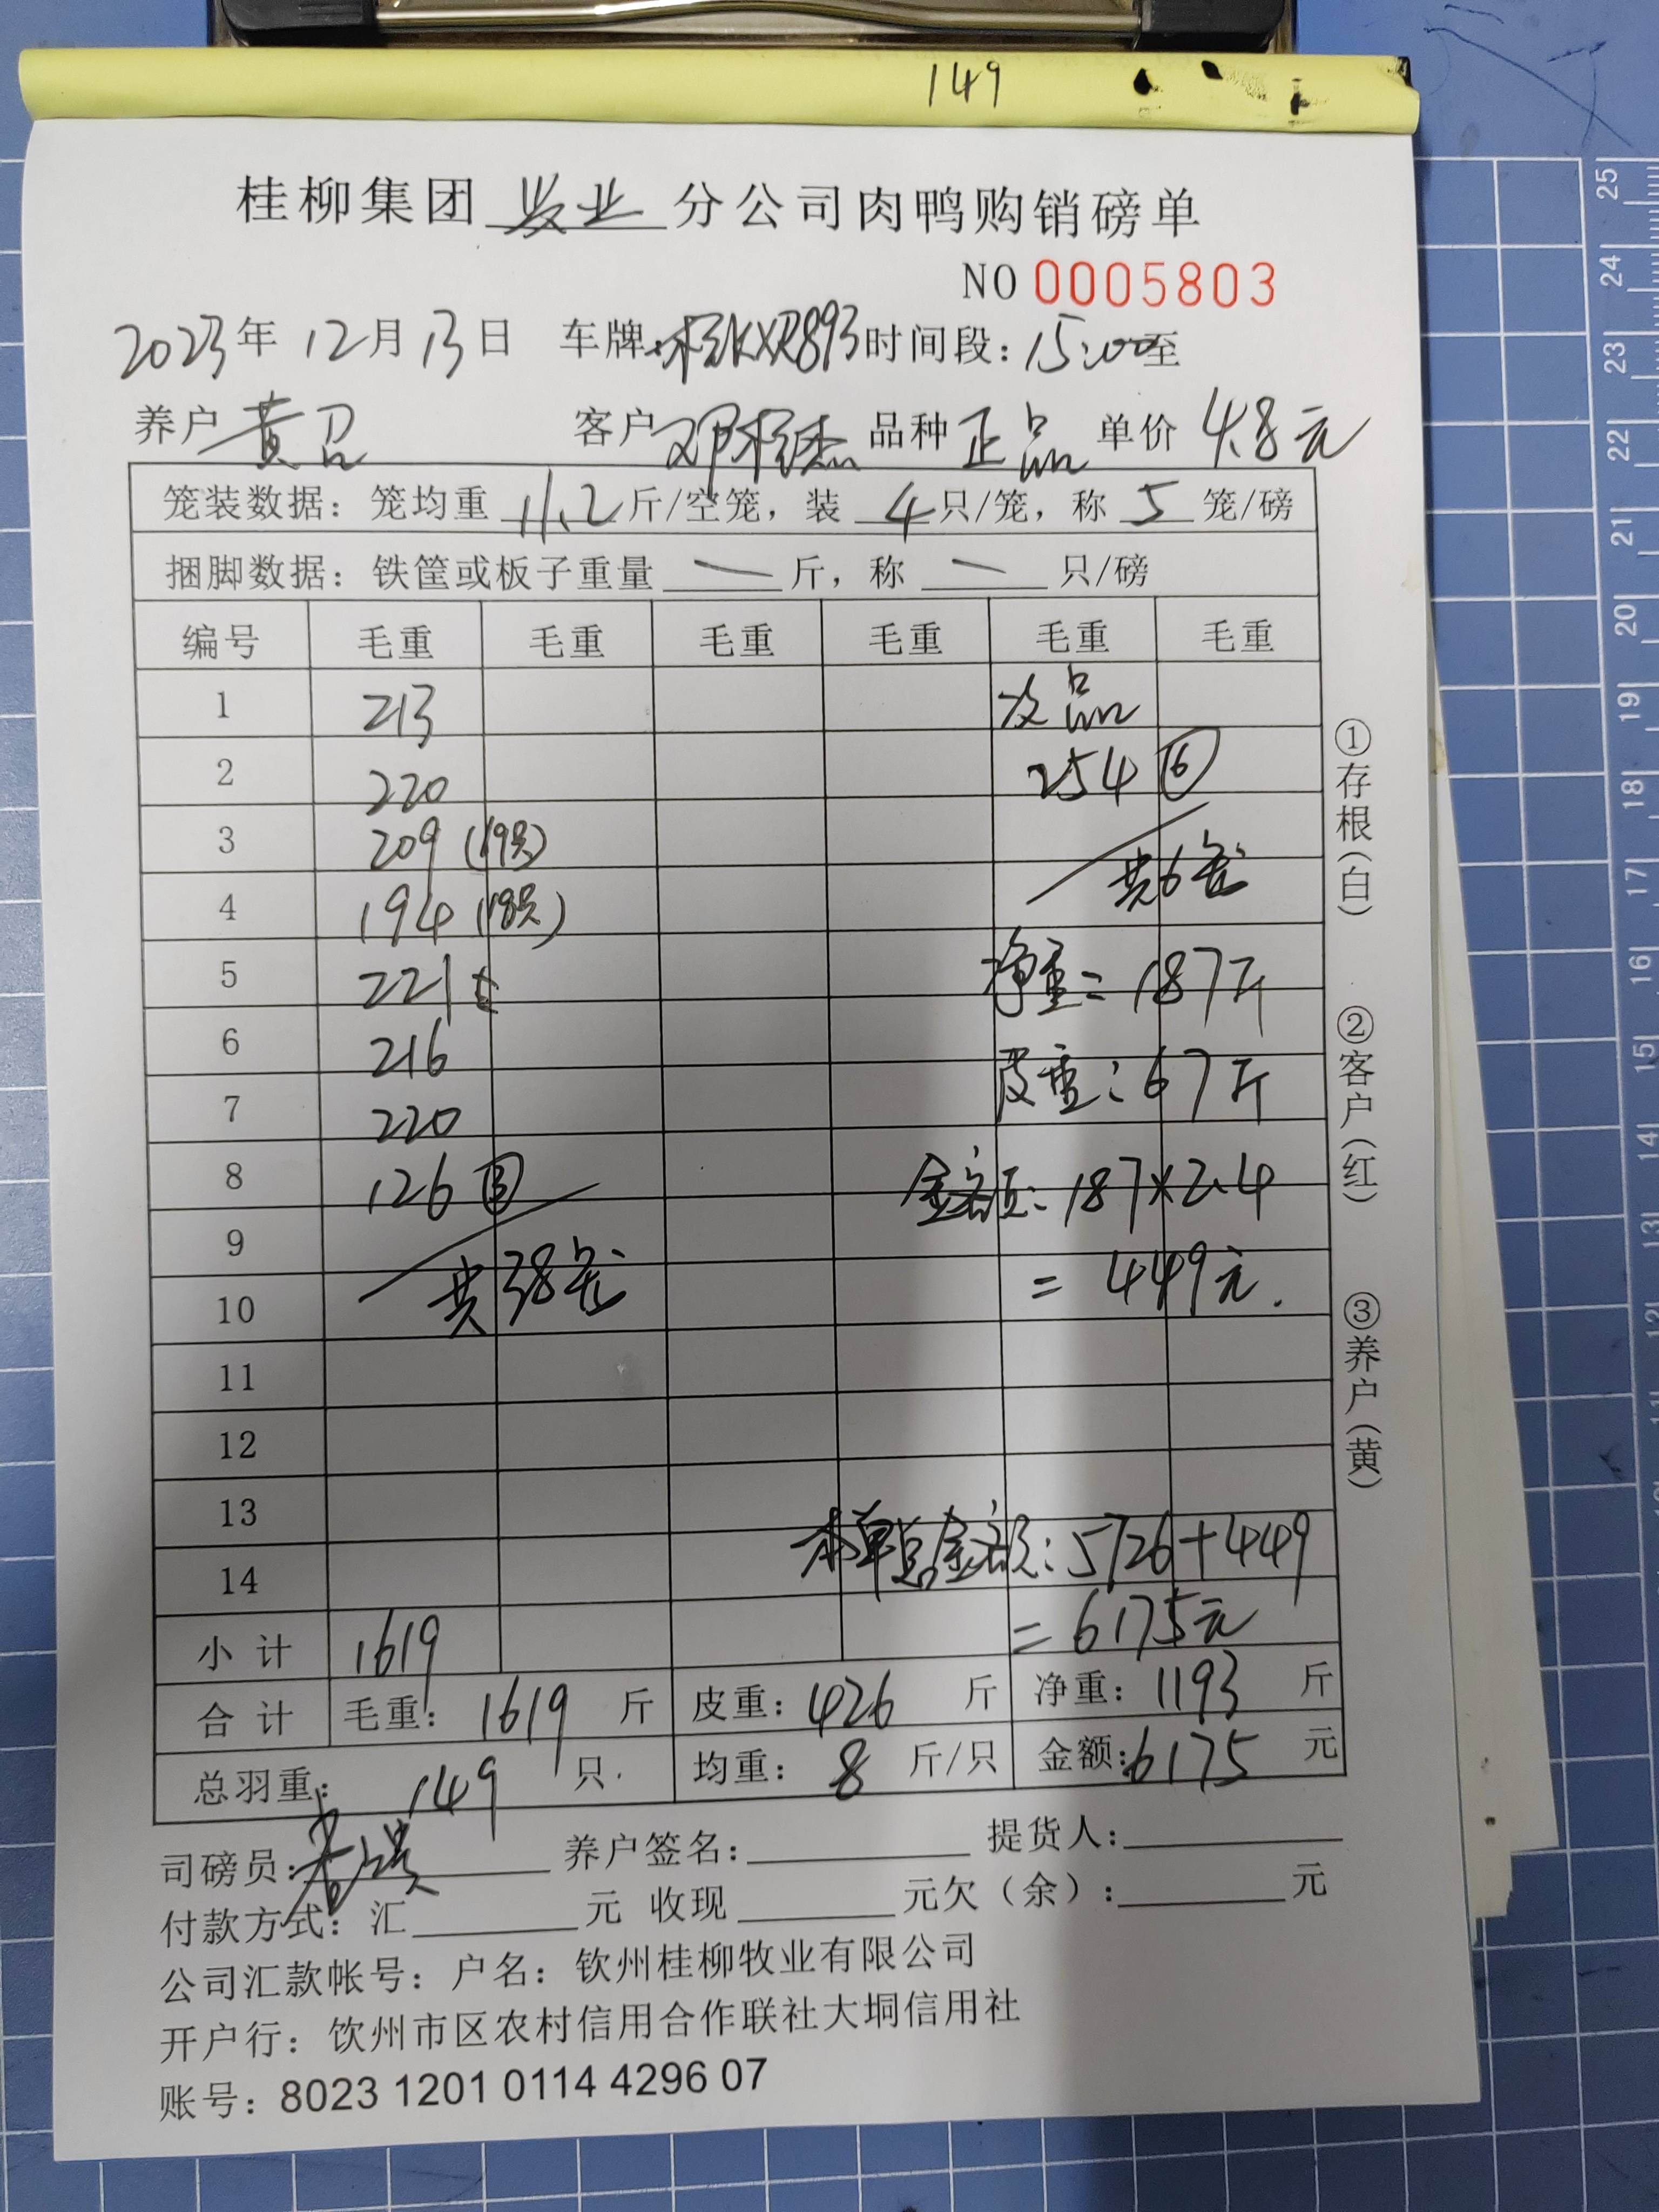 149
桂柳集团 牧业 分公司肉鸭购销磅单
NO 0005803
2023年 12月 13日 车牌:桂KXR893 时间段:15:00至
养户 黄召 客户 邓桂杰 品种 正品 单价 4.8元
笼装数据：笼均重 11.2 斤/空笼，装 4 只/笼，称 5 笼/磅
捆脚数据：铁筐或板子重量 — 斤，称 — 只/磅
编号 毛重 毛重 毛重 毛重 毛重 毛重
1 213 次品
2 220 254 ⑥
3 209 (19只)
共6笼
4 194 (18只)
5 221 净重=187斤
6 216
7 220 皮重:67斤
8 126 ③ 金额:187×2.4
9 共38笼 =449元.
10
11
12
13
14 本单总金额:5726+449
小计 1619 =6175元
合计 毛重: 1619 斤 皮重: 426 斤 净重: 1193 斤
总羽重: 149 只. 均重: 8 斤/只 金额:6175 元
司磅员: 养户签名: 提货人:
付款方式: 汇 元 收现 元欠（余）: 元
公司汇款帐号: 户名: 钦州桂柳牧业有限公司
开户行: 钦州市区农村信用合作联社大垌信用社
账号: 8023 1201 0114 4296 07
①存根(白) ②客户(红) ③养户(黄)
25
24
23
22
21
20
19
18
17
16
15
14
13
12
11